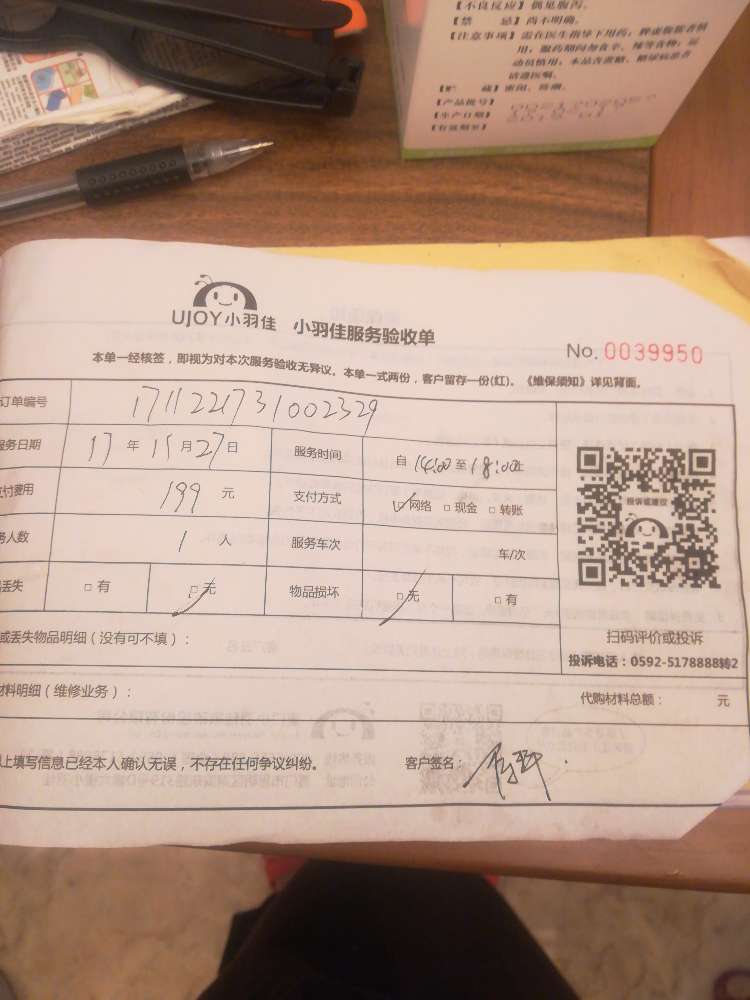 【不良反应】偶见腹泻。
【禁 忌】尚不明确。
【注意事项】需在医生指导下用药，脾虚腹泻者慎
用，服药期间勿食辛、辣等食物；运
动员慎用，本品含蔗糖，糖尿病患者
请遵医嘱。
【贮 藏】密闭、防潮。
【产品批号】
【生产日期】
【有效期至】
UJOY小羽佳 小羽佳服务验收单
No. 0039950
本单一经核签，即视为对本次服务验收无异议。本单一式两份，客户留存一份(红)。《维保须知》详见背面。
订单编号 1711221731002329
服务日期 17 年 11 月 27 日 服务时间 自 14:00 至 18:00止
支付费用 199 元 支付方式 网络 现金 转账
务人数 1 人 服务车次 车/次
丢失 有 无 物品损坏 无 有
投诉或建议
扫码评价或投诉
投诉电话：0592-5178888转2
或丢失物品明细（没有可不填）：
材料明细（维修业务）： 代购材料总额： 元
以上填写信息已经本人确认无误，不存在任何争议纠纷。 客户签名：